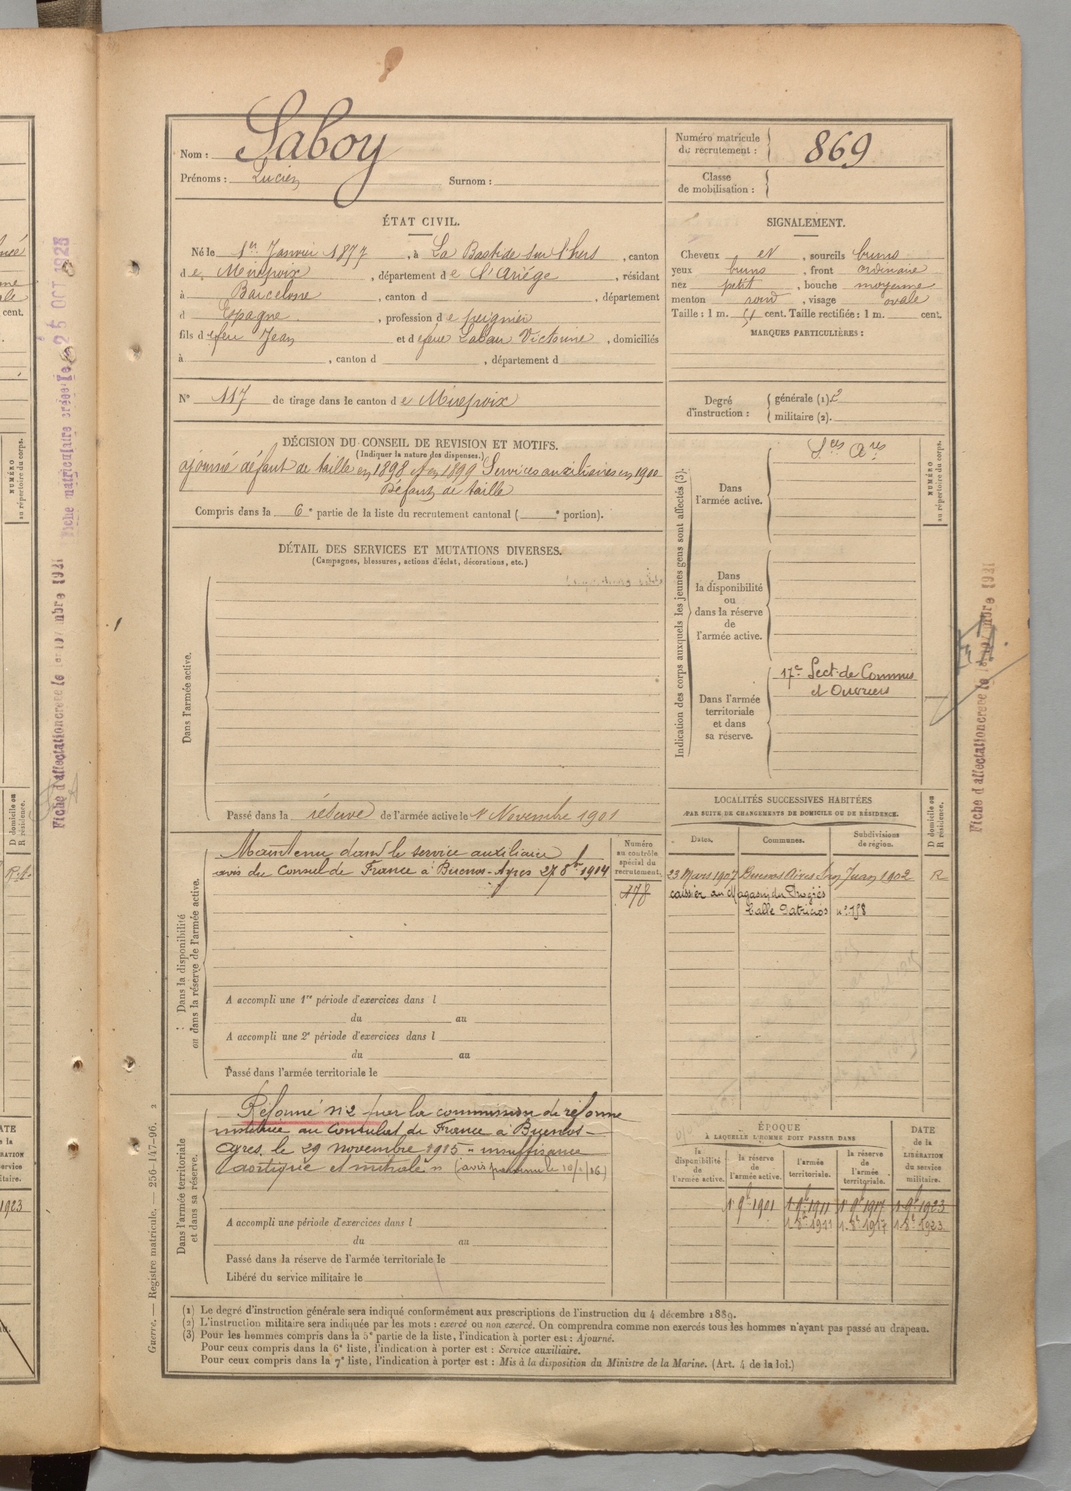 Nom : Saboy
Prénoms : Lucien Surnom :
Numéro matricule du recrutement : 869
Classe de mobilisation :
ÉTAT CIVIL.
Né le 1er Janvier 1877, à La Bastide sur l'hers, canton
de Mirepoix, département de l'Ariège, résidant
à Barcelone, canton d , département
d Espagne, profession de peignier
fils de feu Jean et de feue Laban Victorine, domiciliés
à , canton d , département d
SIGNALEMENT.
Cheveux et, sourcils bruns
yeux bruns, front ordinaire
nez petit, bouche moyenne
menton rond, visage ovale
Taille : 1 m. 51 cent. Taille rectifiée : 1 m. cent.
MARQUES PARTICULIÈRES :
N° 117 de tirage dans le canton de Mirepoix
Degré d'instruction : générale (1) 2
militaire (2).
DÉCISION DU CONSEIL DE REVISION ET MOTIFS.
(Indiquer la nature des dispenses.)
ajourné défaut de taille en 1898 et en 1899 Services auxiliaires en 1900
Défaut de taille
Compris dans la 6e partie de la liste du recrutement cantonal ( e portion).
DÉTAIL DES SERVICES ET MUTATIONS DIVERSES.
(Campagnes, blessures, actions d'éclat, décorations, etc.)
Dans l'armée active.
Passé dans la réserve de l'armée active le 1 Novembre 1901
Indication des corps auxquels les jeunes gens sont affectés (3).
Dans l'armée active.
Sces Ares
Dans la disponibilité ou dans la réserve de l'armée active.
Dans l'armée territoriale et dans sa réserve.
17e Sect. de Commis
et Ouvriers
NUMÉRO au répertoire du corps.
Dans la disponibilité ou dans la réserve de l'armée active.
Maintenu dans le service auxiliaire
avis du Consul de France à Buenos-Ayres 27 8bre 1914
Numéro au contrôle spécial du recrutement.
178
A accompli une 1re période d'exercices dans l
du au
A accompli une 2e période d'exercices dans l
du au
Passé dans l'armée territoriale le
LOCALITÉS SUCCESSIVES HABITÉES
PAR SUITE DE CHANGEMENTS DE DOMICILE OU DE RÉSIDENCE.
Dates. Communes. Subdivisions de région. D domicile ou R résidence.
23 Mars 1907 Buenos Aires San Juan 1902 R
caissier au Magasin du Progrés
Calle Patricios n° 158
Dans l'armée territoriale et dans sa réserve.
Réformé n° 2 par la commission de réforme
instituée au Consulat de France à Buenos-
Ayres, le 29 novembre 1915 "insuffisance
aortique et mitrale"
A accompli une période d'exercices dans l
du au
Passé dans la réserve de l'armée territoriale le
Libéré du service militaire le
ÉPOQUE
A LAQUELLE L'HOMME DOIT PASSER DANS
la disponibilité de l'armée active. la réserve de l'armée active. l'armée territoriale. la réserve de l'armée territoriale. DATE de la LIBÉRATION du service militaire.
1 9bre 1901 1 9bre 1911 1 9bre 1917 1 9bre 1923
1 8bre 1911 1 8bre 1917 1 8bre 1923
(1) Le degré d'instruction générale sera indiqué conformément aux prescriptions de l'instruction du 4 décembre 1889.
(2) L'instruction militaire sera indiquée par les mots : exercé ou non exercé. On comprendra comme non exercés tous les hommes n'ayant pas passé au drapeau.
(3) Pour les hommes compris dans la 5e partie de la liste, l'indication à porter est : Ajourné.
Pour ceux compris dans la 6e liste, l'indication à porter est : Service auxiliaire.
Pour ceux compris dans la 7e liste, l'indication à porter est : Mis à la disposition du Ministre de la Marine. (Art. 4 de la loi.)
Guerre. — Registre matricule. — 256-147-96. 2
Fiche matriculaire créée le 25 OCT 1928
Fiche d'affectation créée le
Fiche d'affectation créée le